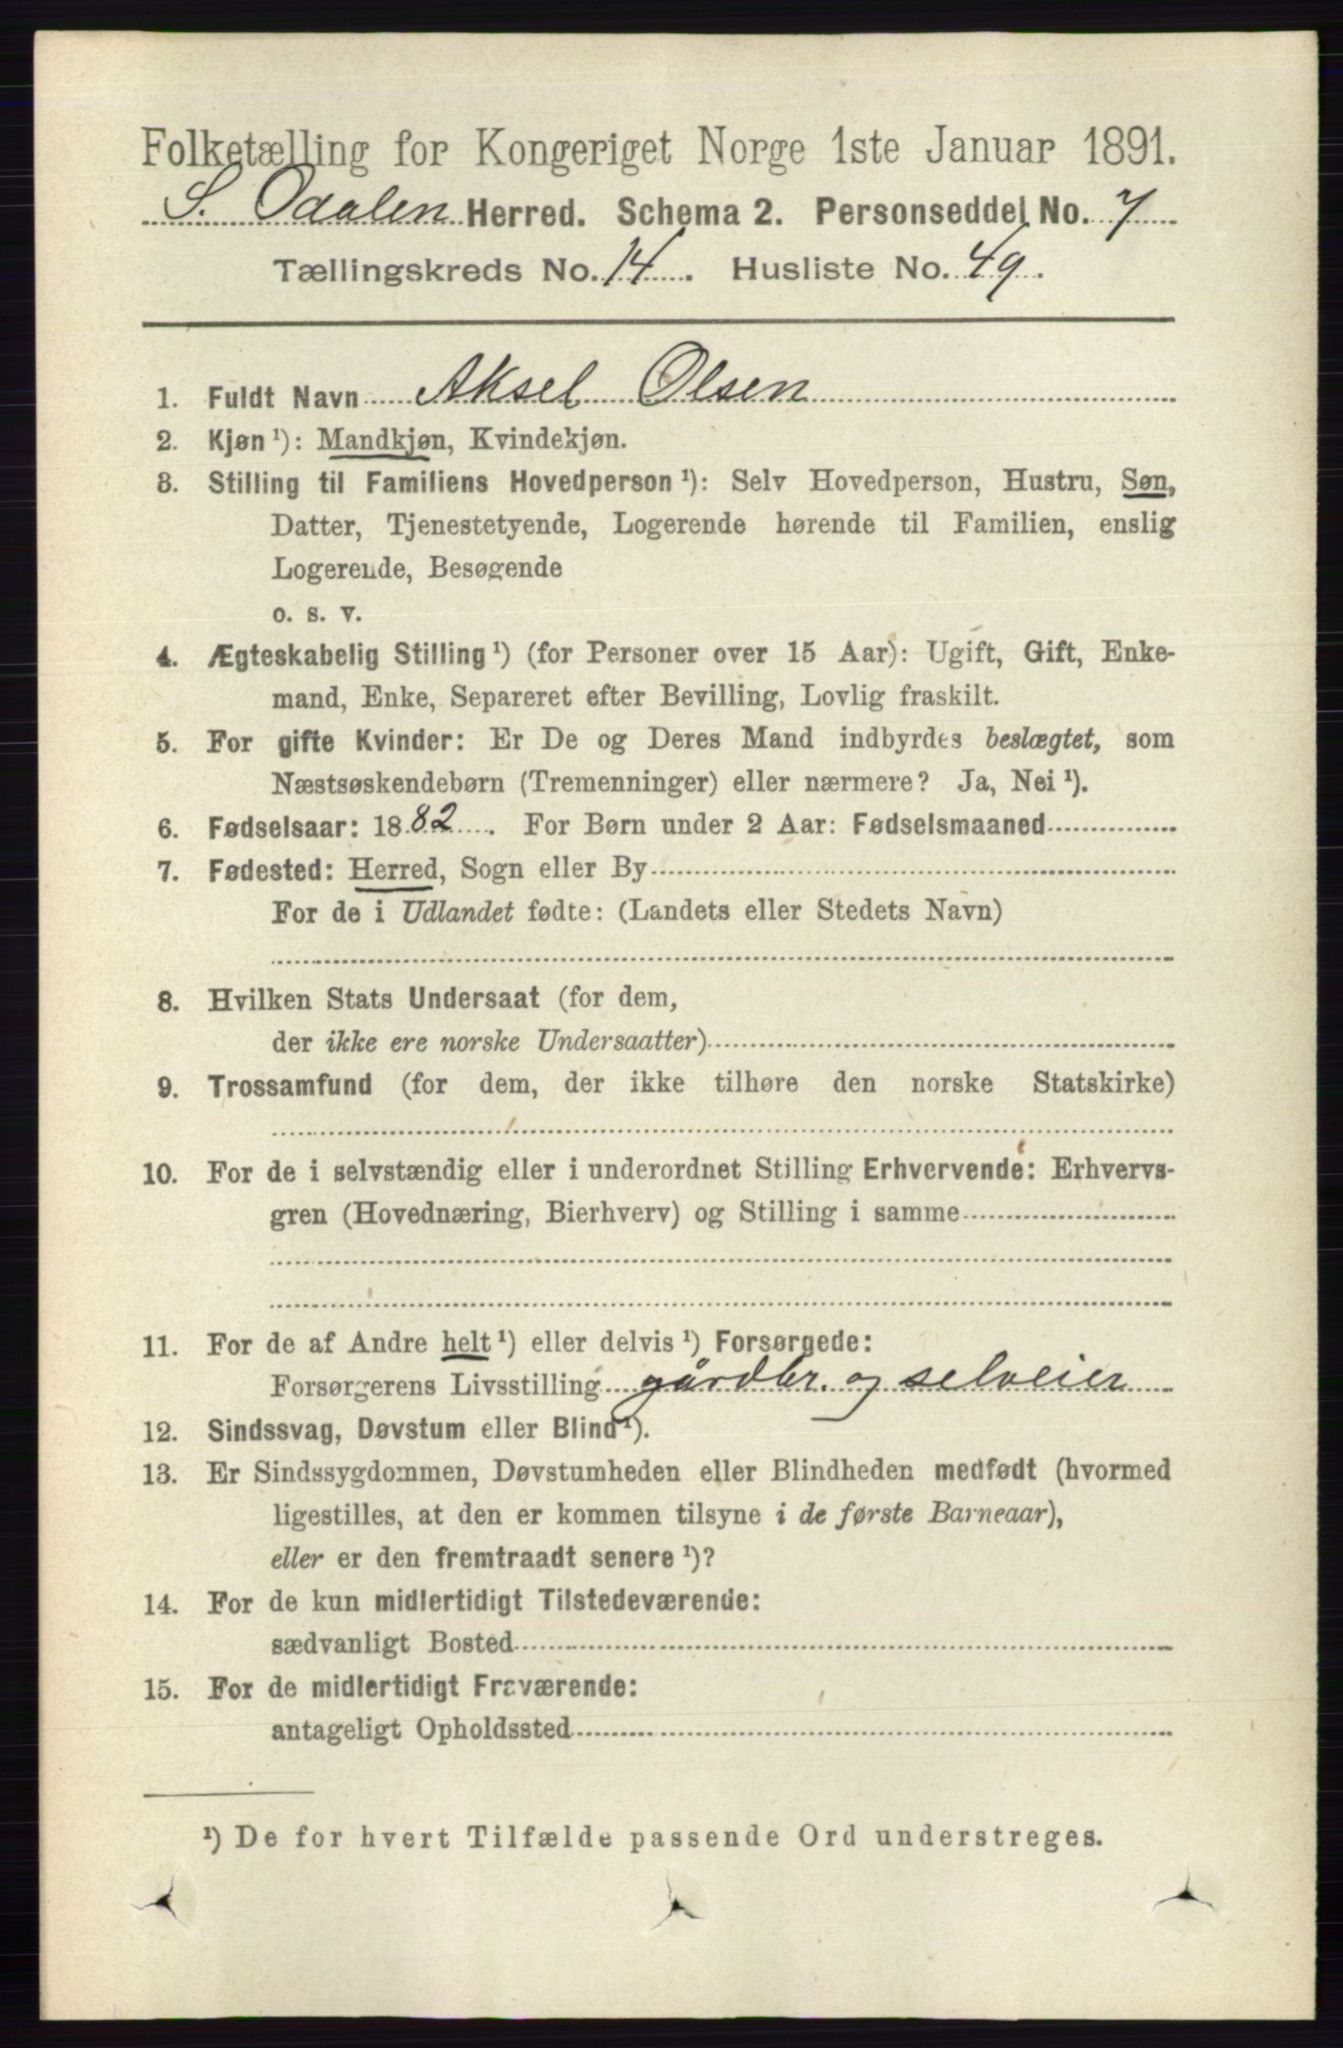 Folketælling for Kongeriget Norge 1ste Januar 1891.
S. Odalen Herred. Schema 2. Personseddel No. 7
Tællingskreds No. 14. Husliste No. 49.
1. Fuldt Navn Aksel Olsen
2. Kjøn ¹): Mandkjøn, Kvindekjøn.
3. Stilling til Familiens Hovedperson ¹): Selv Hovedperson, Hustru, Søn,
Datter, Tjenestetyende, Logerende hørende til Familien, enslig
Logerende, Besøgende
o. s. v.
4. Ægteskabelig Stilling ¹) (for Personer over 15 Aar): Ugift, Gift, Enke-
mand, Enke, Separeret efter Bevilling, Lovlig fraskilt.
5. For gifte Kvinder: Er De og Deres Mand indbyrdes beslægtet, som
Næstsøskendebørn (Tremenninger) eller nærmere? Ja, Nei ¹).
6. Fødselsaar: 1882. For Børn under 2 Aar: Fødselsmaaned
7. Fødested: Herred, Sogn eller By
For de i Udlandet fødte: (Landets eller Stedets Navn)
8. Hvilken Stats Undersaat (for dem,
der ikke ere norske Undersaatter)
9. Trossamfund (for dem, der ikke tilhøre den norske Statskirke)
10. For de i selvstændig eller i underordnet Stilling Erhvervende: Erhvervs-
gren (Hovednæring, Bierhverv) og Stilling i samme
11. For de af Andre helt ¹) eller delvis ¹) Forsørgede:
Forsørgerens Livsstilling gårdbr. og selveier
12. Sindssvag, Døvstum eller Blind ¹).
13. Er Sindssygdommen, Døvstumheden eller Blindheden medfødt (hvormed
ligestilles, at den er kommen tilsyne i de første Barneaar),
eller er den fremtraadt senere ¹)?
14. For de kun midlertidigt Tilstedeværende:
sædvanligt Bosted
15. For de midlertidigt Fraværende:
antageligt Opholdssted
¹) De for hvert Tilfælde passende Ord understreges.